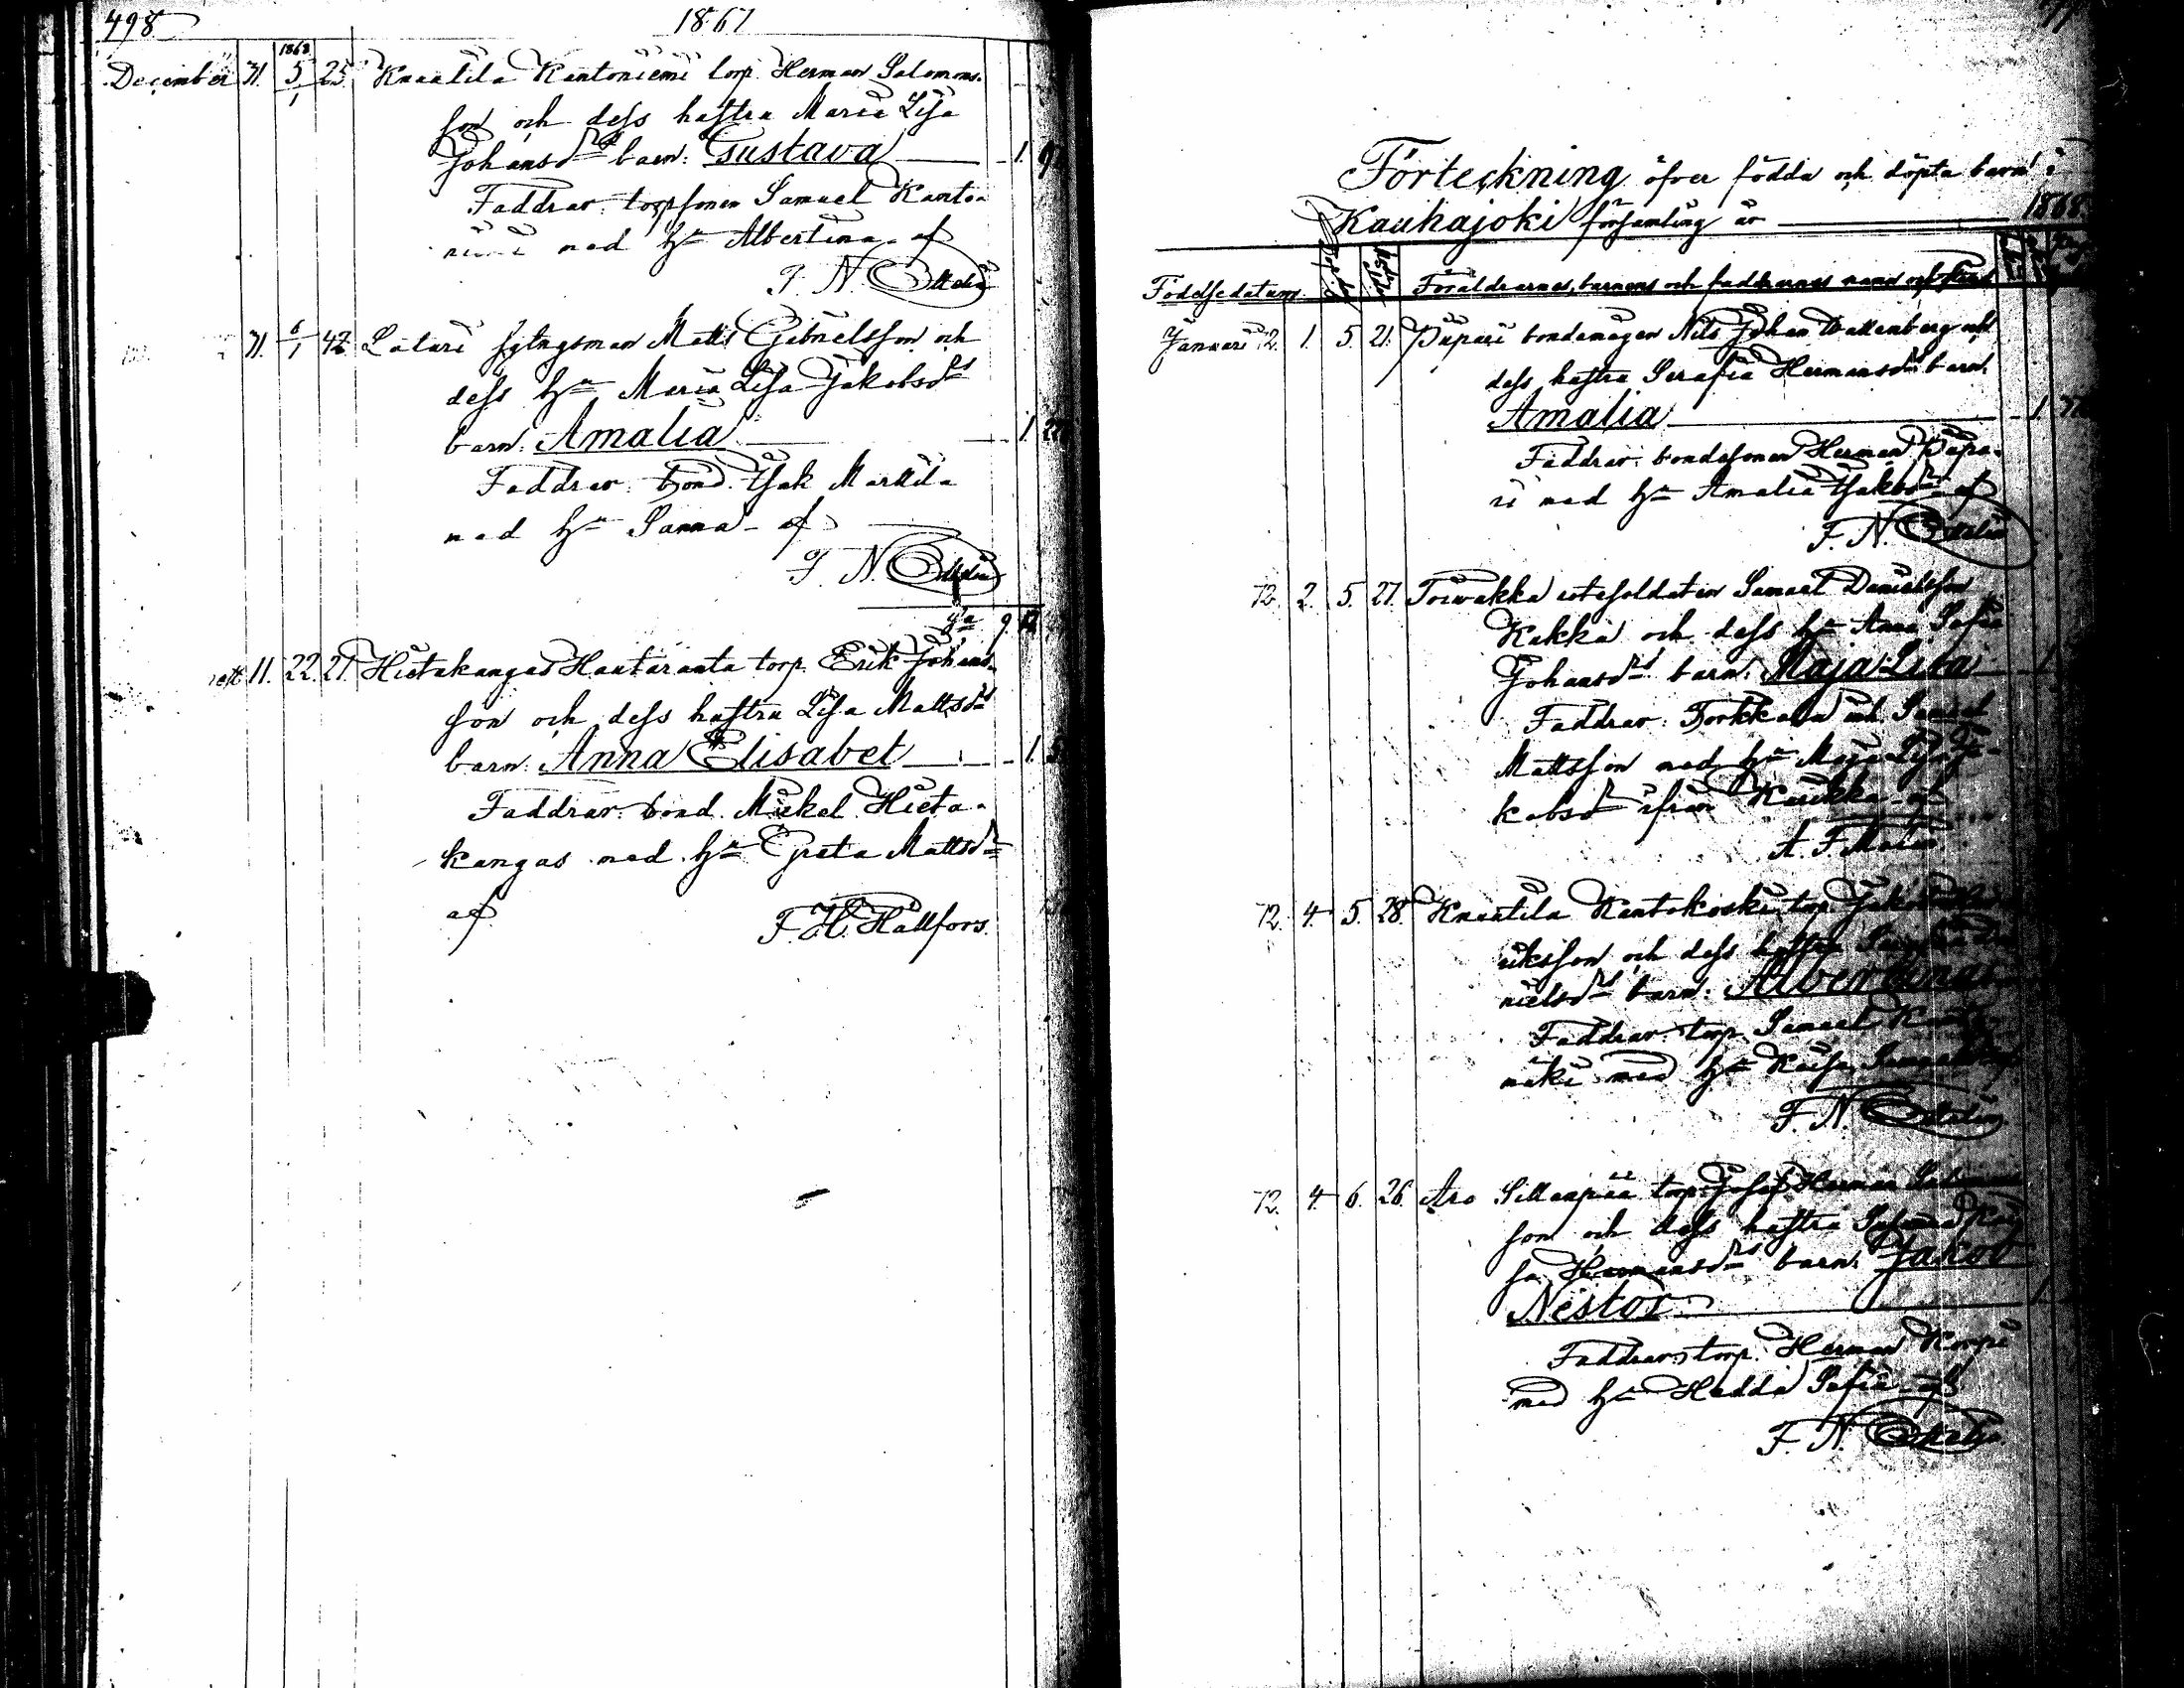 498 1867
December 31. 1868 5/1 25. Knuutila Kantoniemi torp. Herman Salomons-
son och dess hustru Maria Lisa
Johansdr barn: Gustava 1.
Faddrar: torpsonen Samuel Kanto-
niemi med hu Albertina - af
F. N.
31. 6/1 42 Latari sytngsman Matts Gabrielsson och
dess hu Maria Lisa Jakobsdr
barn: Amalia 1.
Faddrar: bond. Isak Marttila
med hu Sanna - af
F. N.
11. 22. 27. Hietakangas Hautaranta torp. Erik Johans-
son och dess hustru Lisa Mattsdr
barn: Anna Elisabet 1.
Faddrar: bond. Mickel Hieta-
kangas med hu Greta Mattsdr
af
F. H. Hällfors.
Förteckning öfver födda och döpta barn i
Kauhajoki församling år 1868.
Födelsedatum. Föräldrarnes, barnens och faddrarnes namn och stånd
Januari 2. 1. 5. 21. Pupari bondemågen Nils Johan Wallenberg och
dess hustru Serafia Hermansdr barn:
Amalia 1
Faddrar: bondesonen Herman Pupa-
ri med hu Amalia Isaksdr af
F. N.
72. 2. 5. 27. Toivakka rotesoldaten Samuel Danielsson
Kukka och dess hu Anna Sofia
Johansdr barn: Maja Lisa 1
Faddrar: Torkkola Samuel
Mattsson med hu Maja Lisa Ja-
kobsdr ifrån
A. F.
72. 4. 5. 28. Knuutila Kantokoski torp. Jakob
riksson och dess hustru
nielsdr barn: Albertina
Faddrar: torp. Samuel
mäki med hu Kaisa
F. N.
72. 4. 6. 26. Aro Sillanpää torp. Josef Herman Salomons-
son och dess hustru Kai-
sa Hermansdr barn: Jakob
Nestor 1
Faddrar: torp. Herman Korpi
med hu Hedda Sofia - af
F. N.